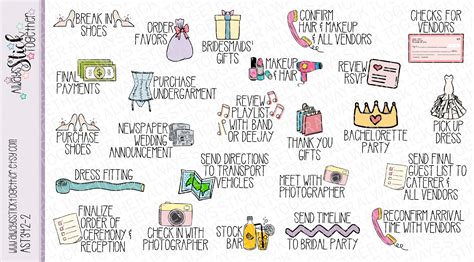 Always
Stick
Together
www.alwayssticktogether.etsy.com
AST342-2
BREAK IN
SHOES
ORDER
FAVORS
BRIDESMAIDS'
GIFTS
CONFIRM
HAIR & MAKEUP
& ALL VENDORS
CHECKS FOR
VENDORS
FINAL
PAYMENTS
PURCHASE
UNDERGARMENT
MAKEUP
& HAIR
REVIEW
RSVP
PURCHASE
SHOES
NEWSPAPER
WEDDING
ANNOUNCEMENT
REVIEW
PLAYLIST
WITH BAND
OR DEEJAY
THANK YOU
GIFTS
BACHELORETTE
PARTY
PICK UP
DRESS
DRESS FITTING
SEND DIRECTIONS
TO TRANSPORT
VEHICLES
MEET WITH
PHOTOGRAPHER
SEND FINAL
GUEST LIST TO
CATERER &
ALL VENDORS
FINALIZE
ORDER OF
CEREMONY &
RECEPTION
CHECK IN WITH
PHOTOGRAPHER
STOCK
BAR
SEND TIMELINE
TO BRIDAL PARTY
RECONFIRM ARRIVAL
TIME WITH VENDORS